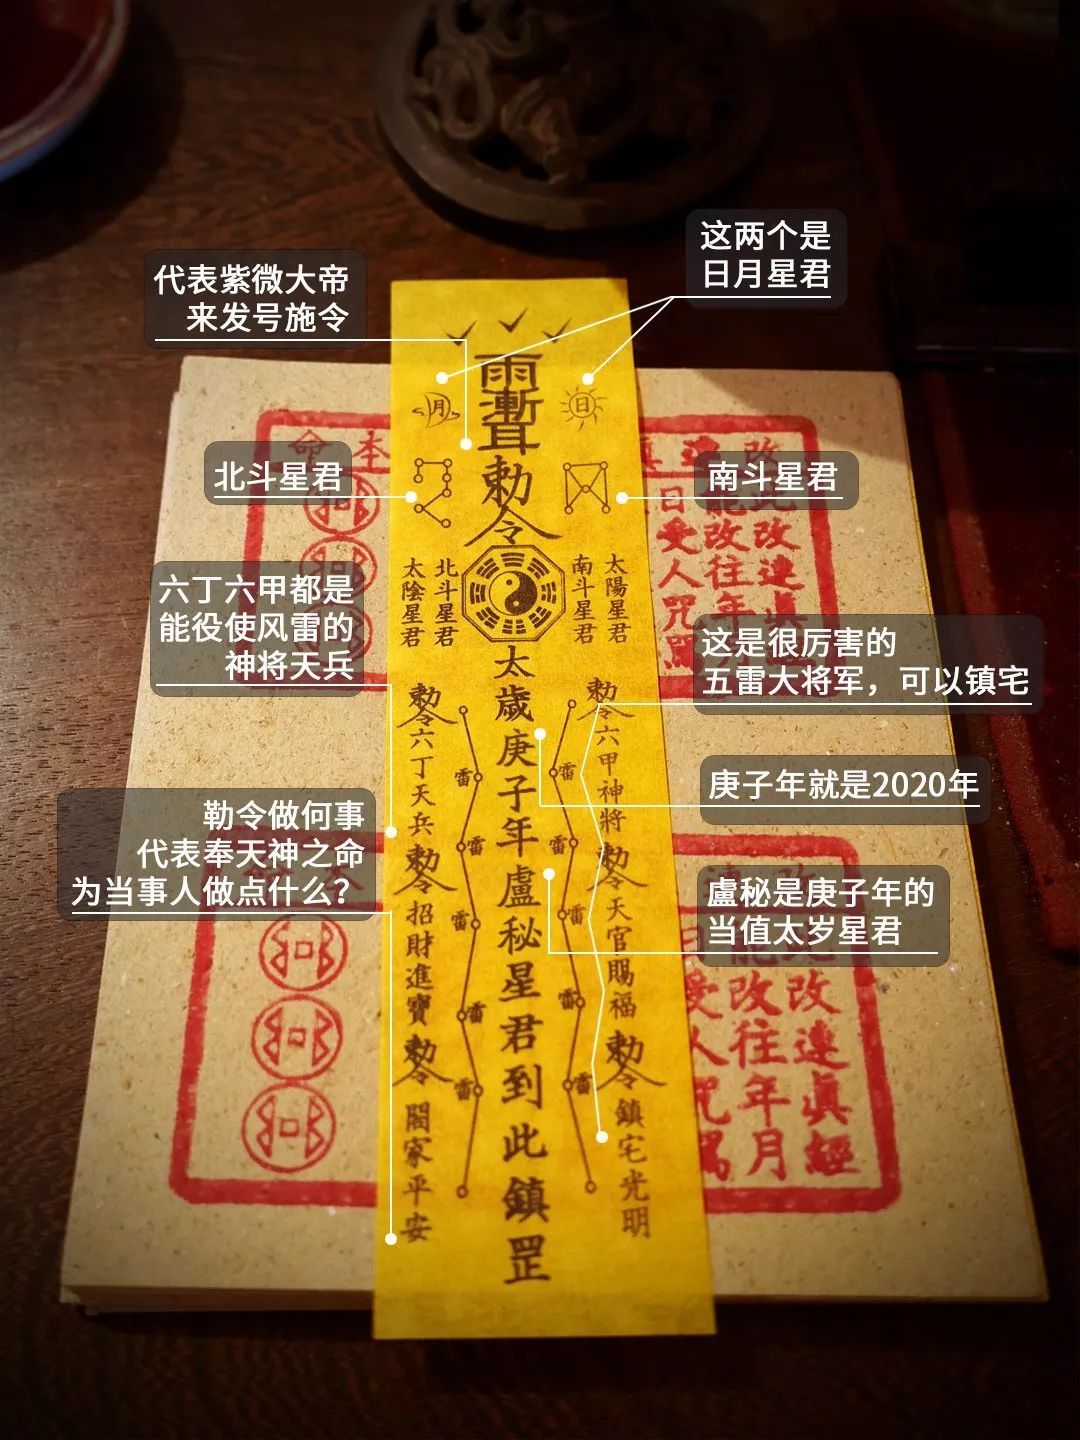 这两个是
日月星君
代表紫微大帝
来发号施令
北斗星君
南斗星君
六丁六甲都是
能役使风雷的
神将天兵
这是很厉害的
五雷大将军，可以镇宅
庚子年就是2020年
勒令做何事
代表奉天神之命
为当事人做点什么？
盧秘是庚子年的
当值太岁星君
月
日
敕令
太陽星君
南斗星君
北斗星君
太陰星君
太歲庚子年盧秘星君到此鎮罡
敕令六甲神將
敕令天官賜福
敕令鎮宅光明
敕令六丁天兵
敕令招財進寶
敕令閤家平安
雷
雷
雷
雷
雷
雷
雷
雷
雷
雷
本命
改連真經
改往年月
受人咒